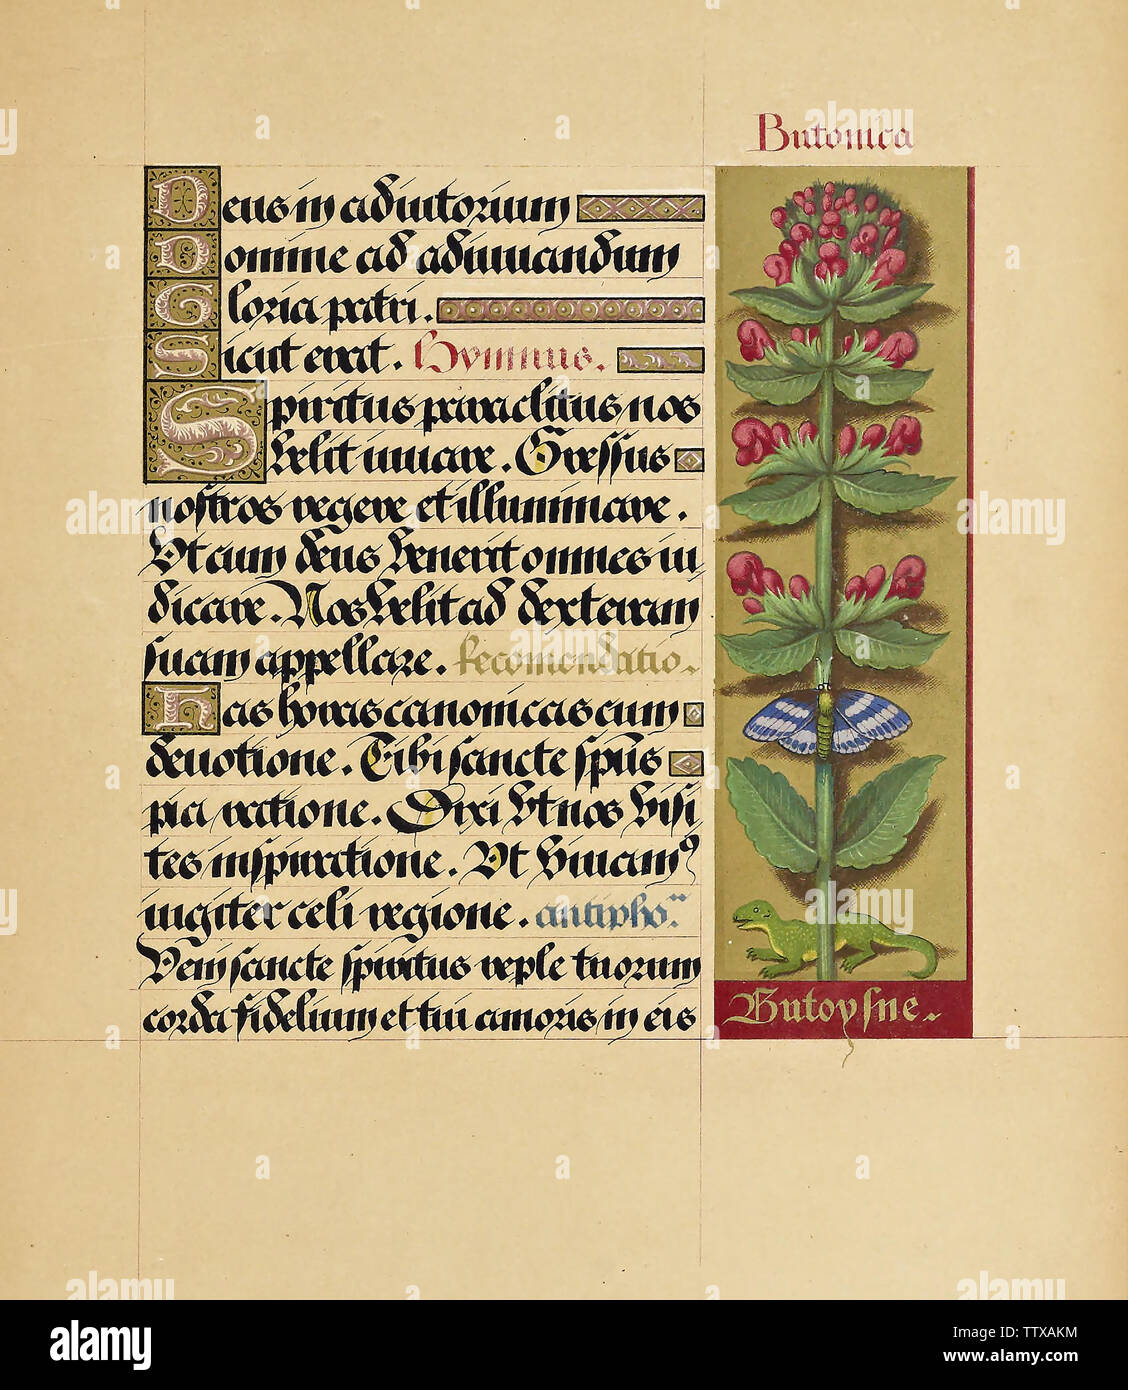 Butonica
Deus in adiutorium
Domine ad adiuuandum
Gloria patri.
Sicut erat. Hymnus.
Spiritus paraclitus nos
Velit iuuare. Gressus
nostros regere et illuminare.
Vt cum deus Venerit omnes iu
dicare. Nos Velit ad dexteram
suam appellare. Recomendatio.
Has horas canonicas cum
deuotione. Tibi sancte spūs
pia ratione. Dixi Vt nos Visi
tes inspiratione. Vt Viuamꝰ
iugiter celi regione. antipho.
Veni sancte spiritus reple tuorum
corda fidelium et tui amoris in eis
Butoysne.
alamy
Image ID: TTXAKM
www.alamy.com